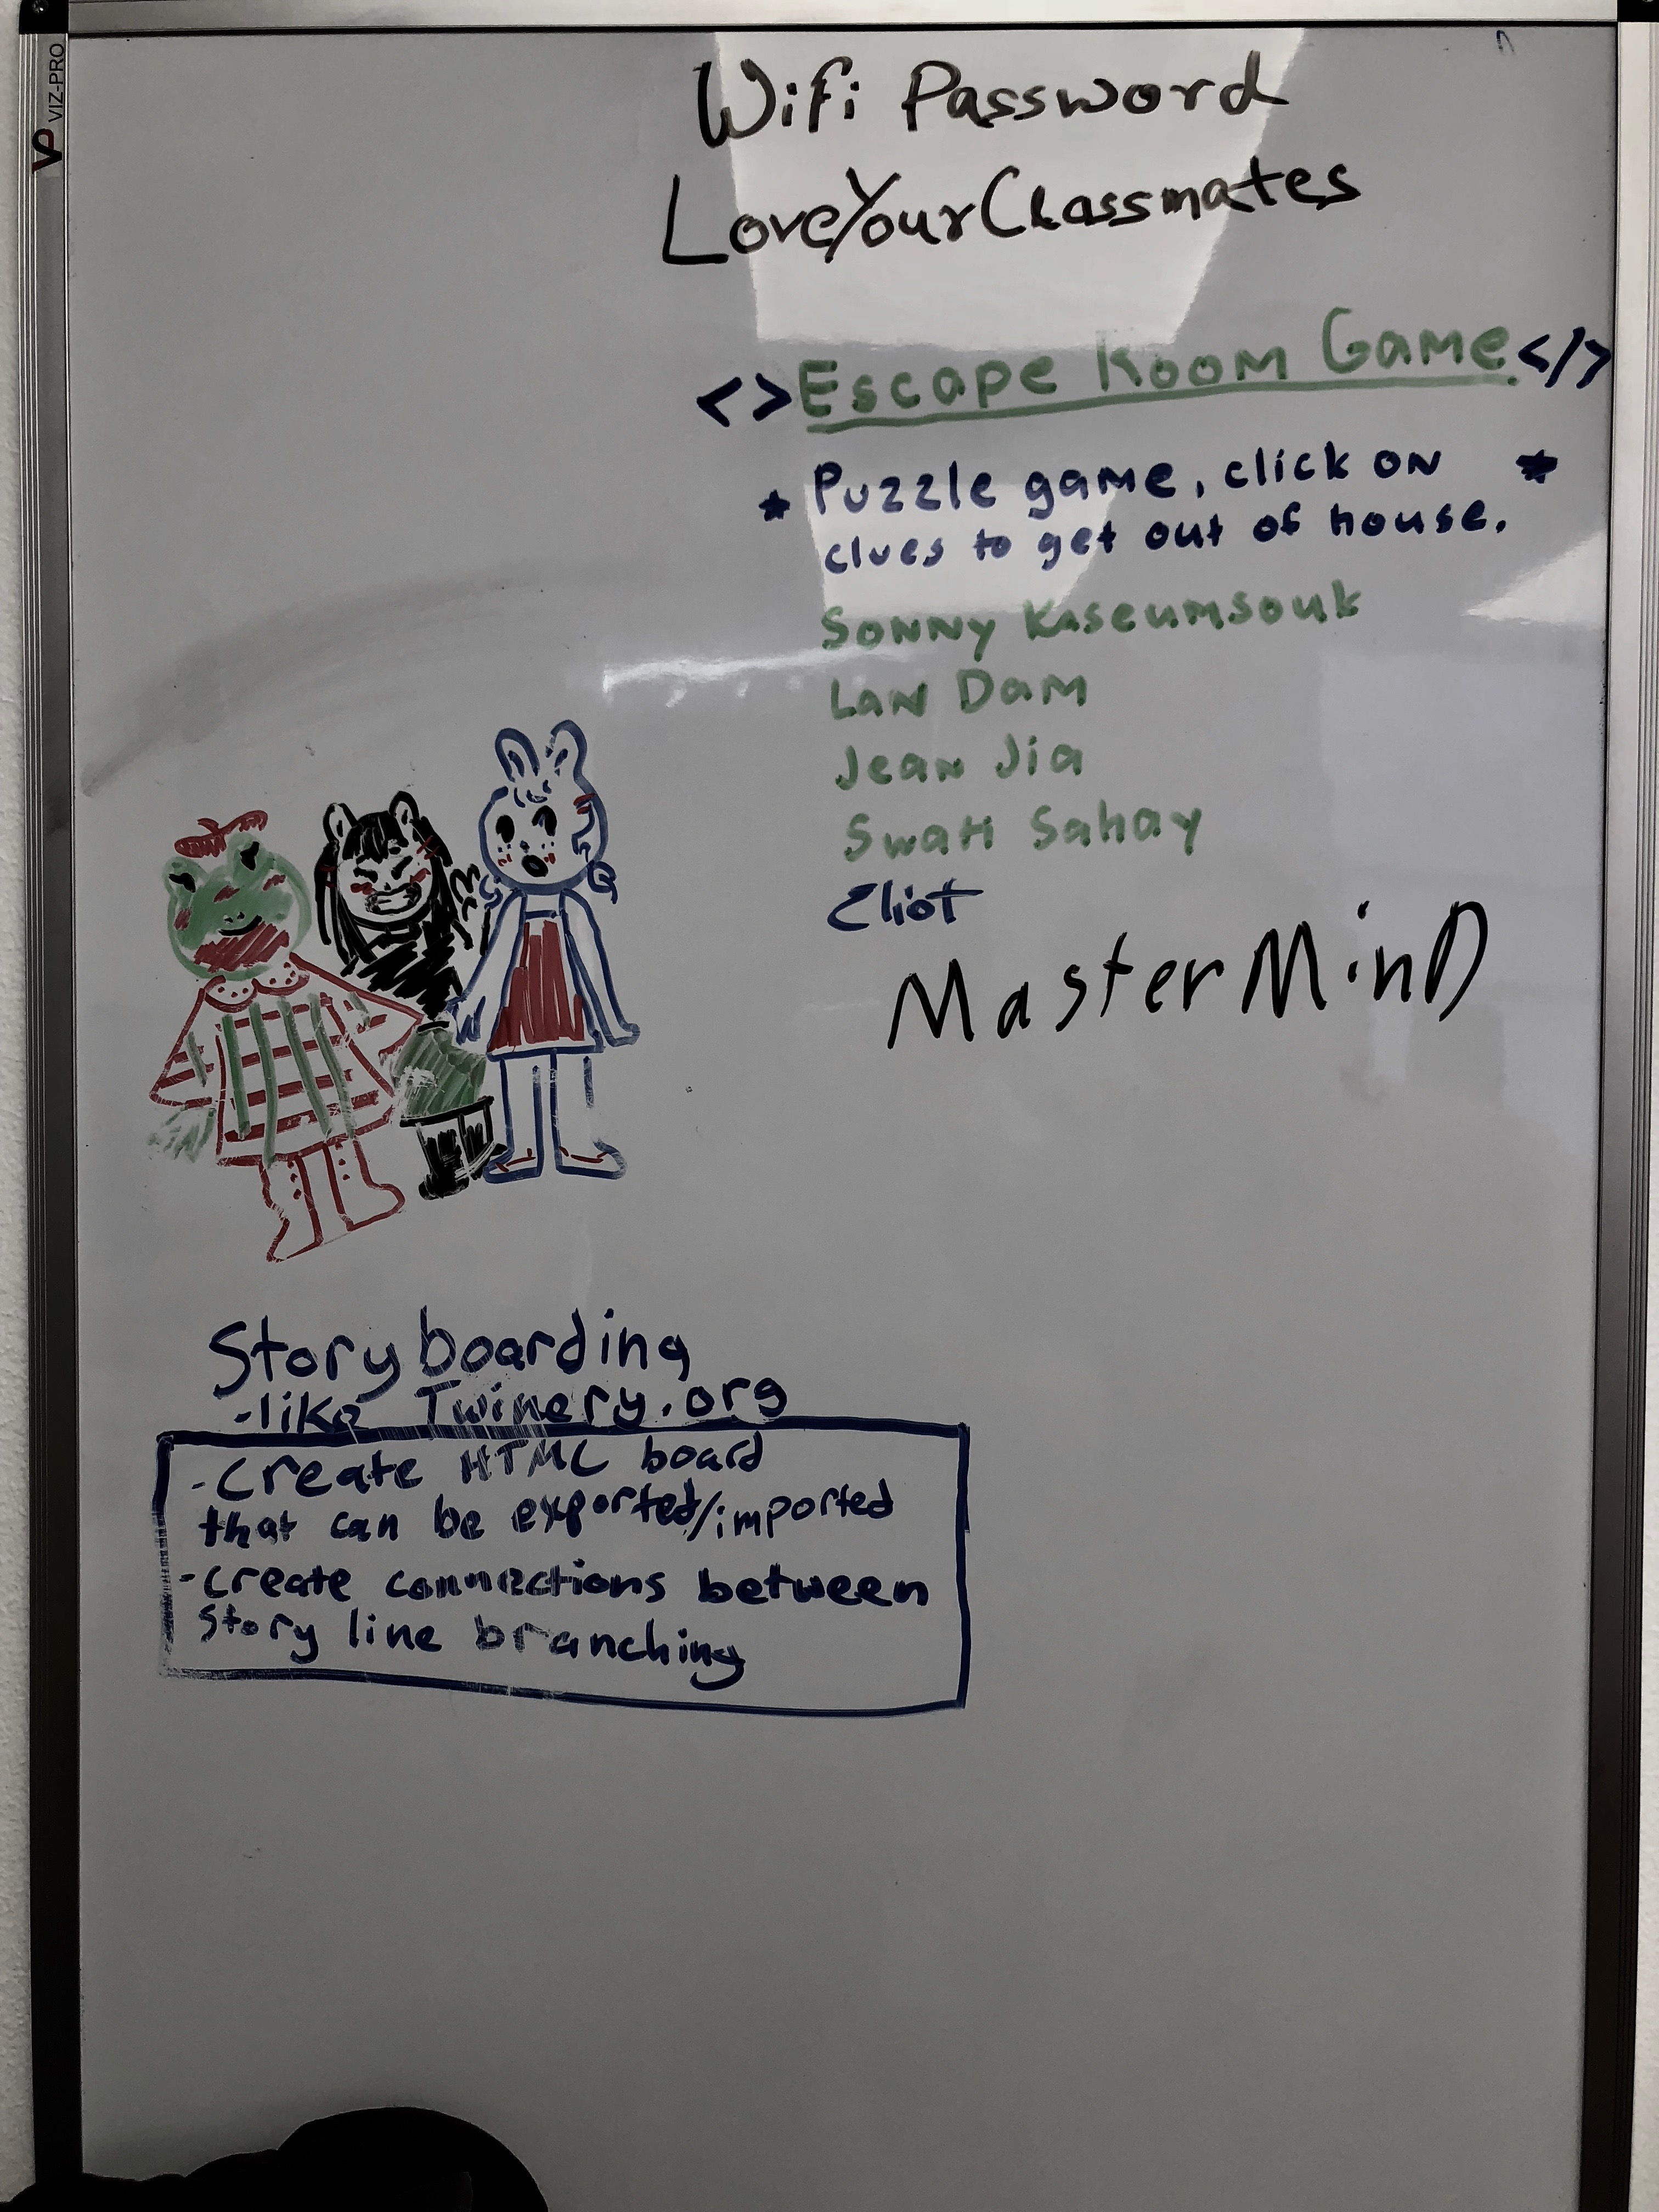 VP VIZ-PRO
Wifi Password
LoveYourClassmates
<> Escape Room Game </>
* Puzzle game, click on *
clues to get out of house.
Sonny Kaseumsouk
Lan Dam
Jean Jia
Swati Sahay
Eliot
MasterMinD
Storyboarding
-like Twinery.org
-create HTML board
that can be exported/imported
-create connections between
story line branching